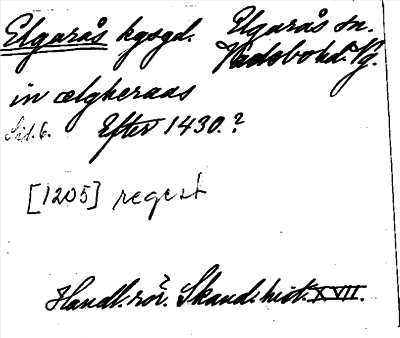 Elgarås kgsgd. Elgarås sn.
Vadsbo hd. Vg.
in ælgheraas
Sid. 6. Efter 1430.?
[1205] regest
Handl. rör. Skand. hist. XVII.